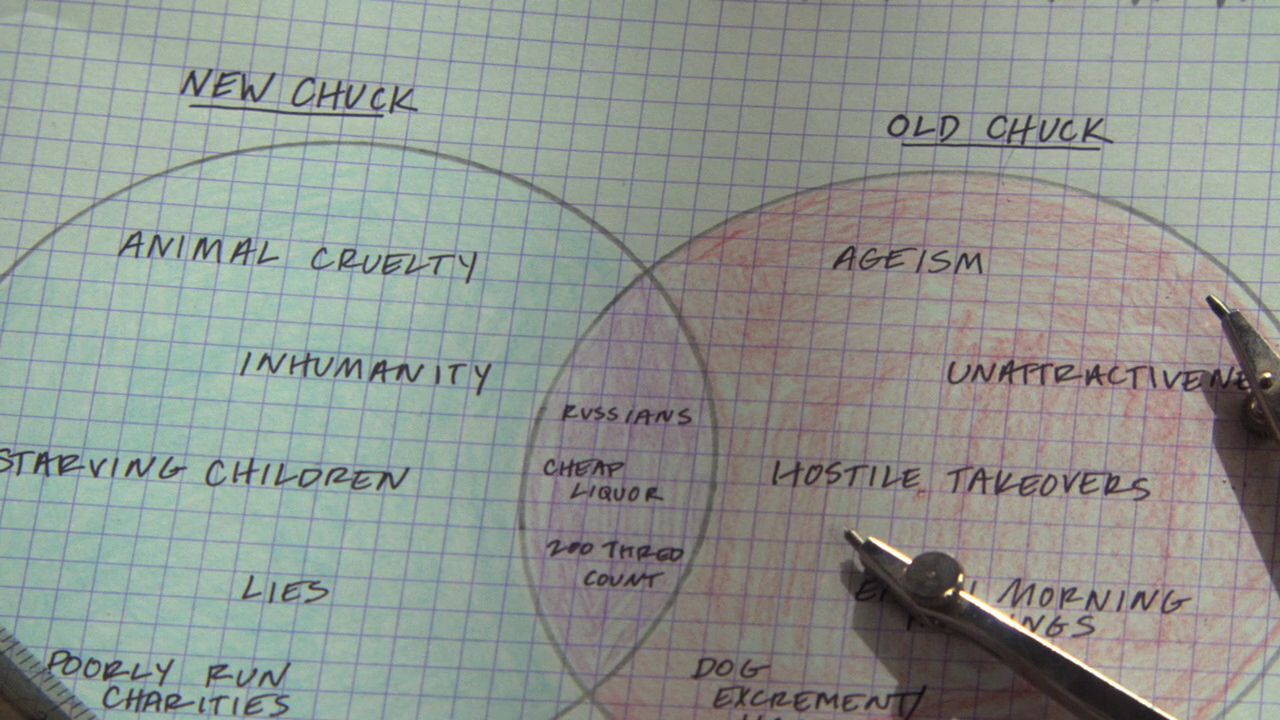 NEW CHUCK
OLD CHUCK
ANIMAL CRUELTY
AGEISM
INHUMANITY
UNATTRACTIVENE
RUSSIANS
STARVING CHILDREN
CHEAP
LIQUOR
HOSTILE TAKEOVERS
200 THRED
COUNT
LIES
MORNING
POORLY RUN
CHARITIES
DOG
EXCREMENT/